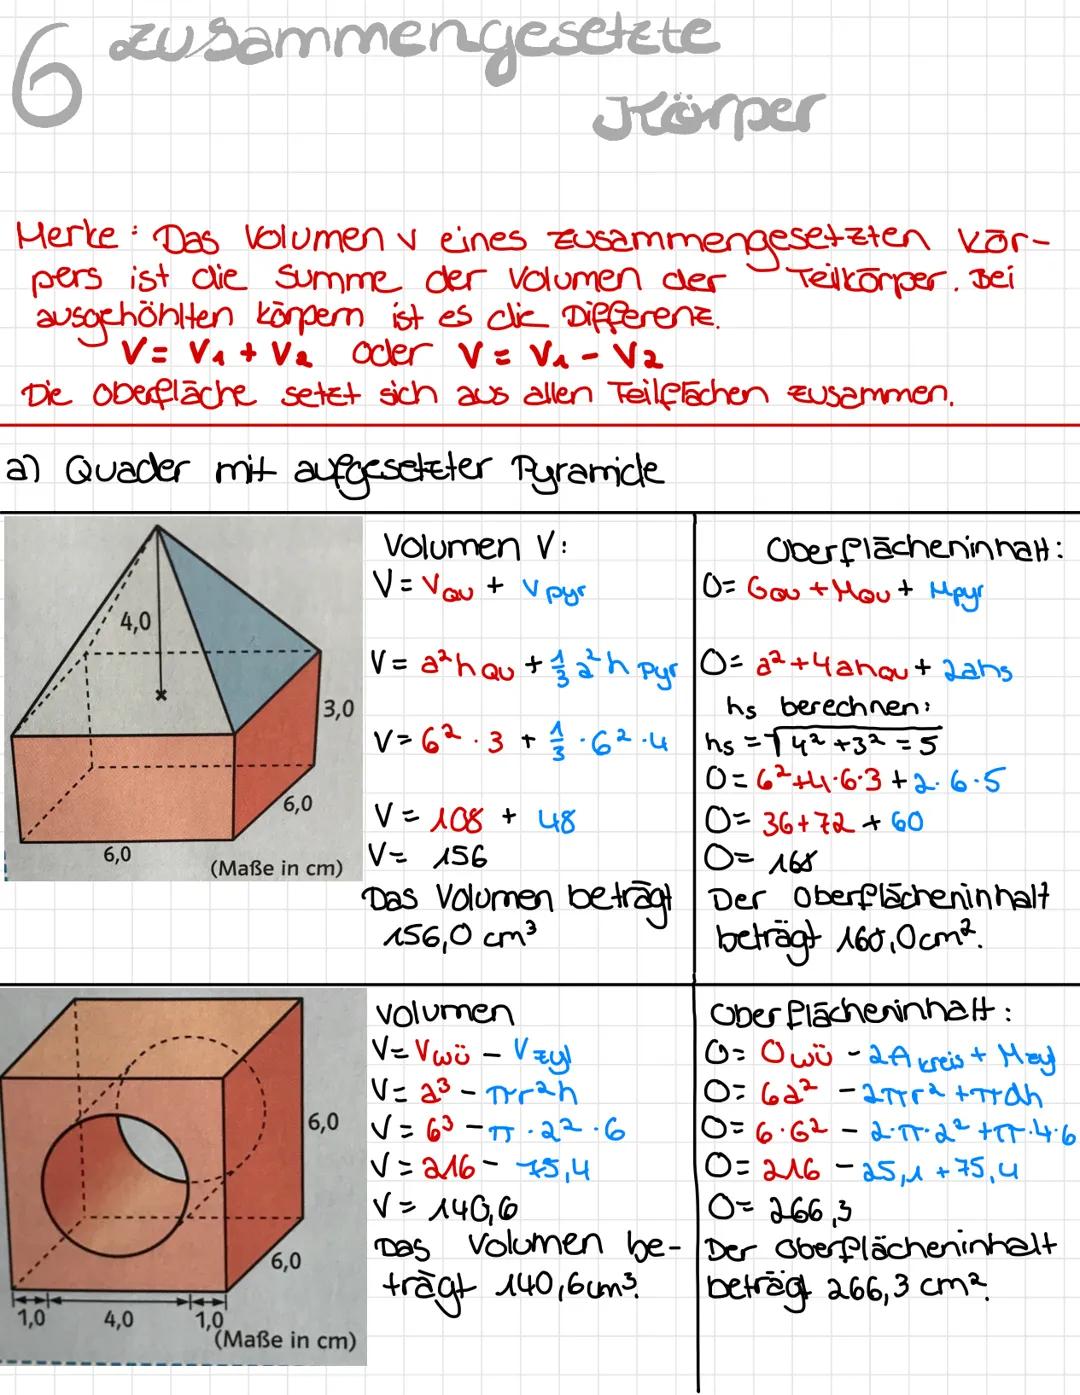 6 zusammengesetzte
Körper
Merke: Das Volumen V eines zusammengesetzten Kör-
pers ist die Summe der Volumen der Teilkörper. Bei
ausgehöhlten Körpern ist es die Differenz.
V = V₁ + V₂ oder V = V₁ - V₂
Die Oberfläche setzt sich aus allen Teilflächen zusammen.
a) Quader mit aufgesetzter Pyramide
4,0
3,0
6,0
6,0
(Maße in cm)
Volumen V:
V = VQu + Vpyr
V = a²hQu + 1/3 a²h pyr
V = 6² · 3 + 1/3 · 6² · 4
V = 108 + 48
V = 156
Das Volumen beträgt
156,0 cm³
Oberflächeninhalt:
O = GQu + MQu + Mpyr
O = a² + 4ahQu + 2ahs
hs berechnen:
hs = √4² + 3² = 5
O = 6² + 4·6·3 + 2·6·5
O = 36 + 72 + 60
O = 168
Der Oberflächeninhalt
beträgt 168,0 cm².
6,0
6,0
1,0 4,0 1,0
(Maße in cm)
Volumen
V = Vwü - Vzyl
V = a³ - πr²h
V = 6³ - π · 2² · 6
V = 216 - 75,4
V = 140,6
Das Volumen be-
trägt 140,6 cm³.
Oberflächeninhalt:
O = Owü - 2A kreis + Mzyl
O = 6a² - 2πr² + πdh
O = 6·6² - 2·π·2² + π·4·6
O = 216 - 25,1 + 75,4
O = 266,3
Der Oberflächeninhalt
beträgt 266,3 cm².